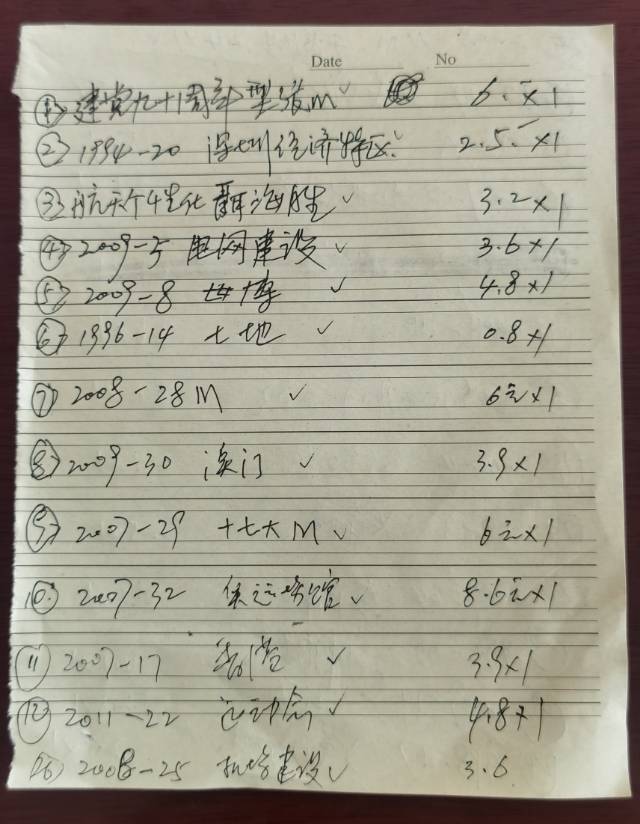 Date No
① 建党九十周年 型张M ✓ 6.元×1
② 1994-20 深圳经济特区 ✓ 2.5.元×1
③ 航天个性化 聂海胜 ✓ 3.2×1
④ 2009-5 电网建设 ✓ 3.6×1
⑤ 2009-8 世博 ✓ 4.8×1
⑥ 1996-14 土地 ✓ 0.8×1
⑦ 2008-28M ✓ 6元×1
⑧ 2009-30 澳门 ✓ 3.9×1
⑨ 2007-29 十七大M ✓ 6元×1
⑩ 2007-32 奥运场馆 ✓ 8.6元×1
⑪ 2007-17 ✓ 3.9×1
⑫ 2011-22 运动会 ✓ 4.8×1
2008-25 机场建设 ✓ 3.6